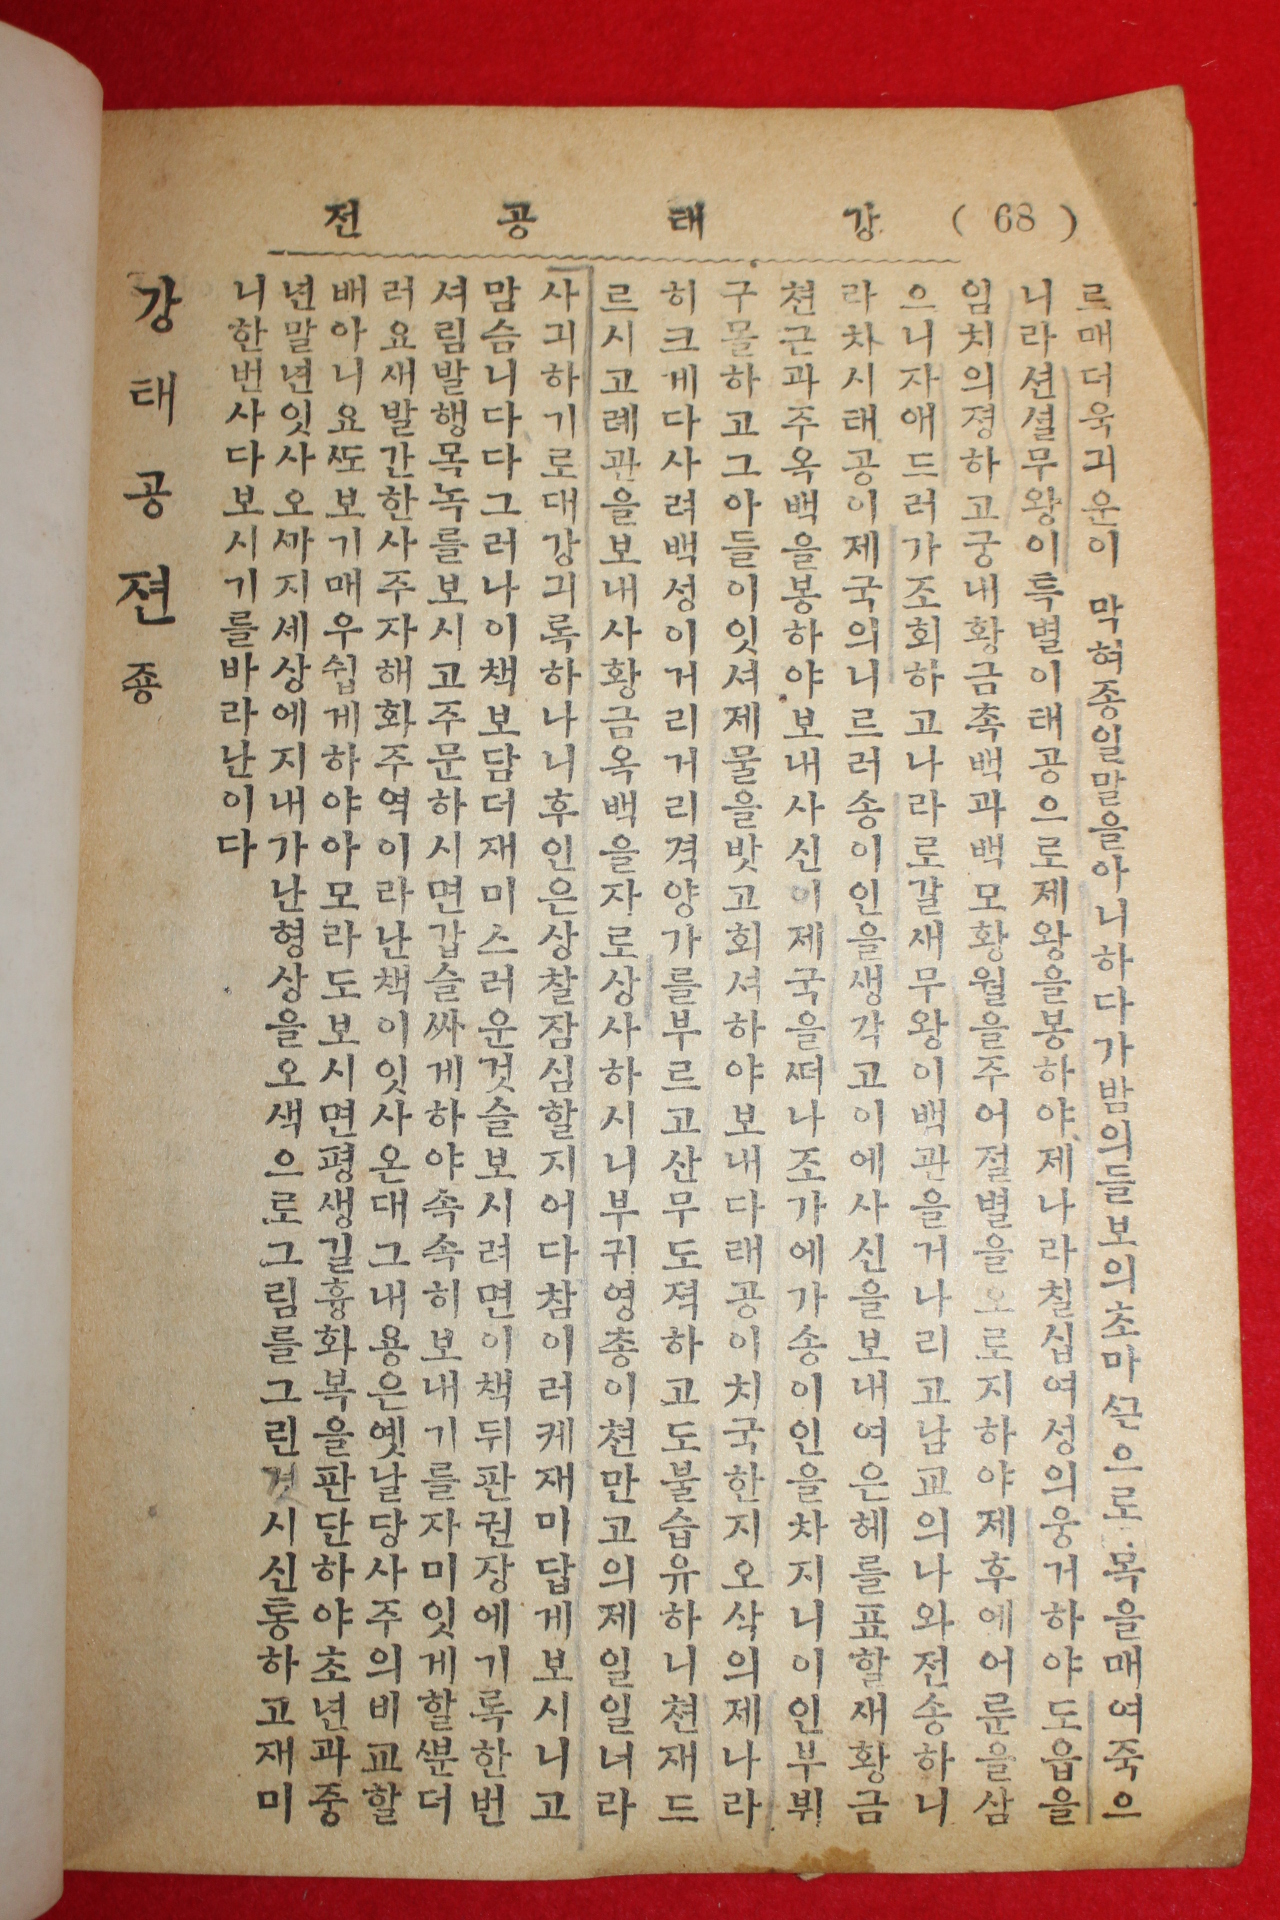 ( 68 ) 강 태 공 전
르매더욱긔운이 막혀종일말을아니하다가밤의들보의초마끈으로 목을매여죽으
니라션셜무왕이특별이태공으로제왕을봉하야제나라칠십여셩의웅거하야도읍을
임치의졍하고궁내황금촉백과백모황월을주어졀별을오로지하야제후에어룬을삼
으니자애드러가조회하고나라로갈새무왕이백관을거나리고남교의나와전송하니
라차시태공이제국의니르러송이인을생각고이에사신을보내여은혜를표할새황금
쳔근과주옥백을봉하야보내사신이제국을떠나조가에가송이인을차지니이인부뷔
구몰하고그아들이잇셔제물을밧고회셔하야보내다래공이치국한지오삭의제나라
히크게다사려백성이거리거리격양가를부르고산무도젹하고도불습유하니쳔재드
르시고례관을보내사황금옥백을자로상사하시니부귀영총이쳔만고의제일일너라
사긔하기로대강긔록하나니후인은상찰잠심할지어다참이러케재마답게보시니고
맘슴니다다그러나이책보담더재미스러운것슬보시려면이책뒤판권장에기록한번
셔림발행목녹를보시고주문하시면갑슬싸게하야속속히보내기를자미잇게할뿐더
러요새발간한사주자해화주역이라난책이잇사온대그내용은옛날당사주의비교할
배아니요또보기매우쉽게하야아모라도보시면평생길흉화복을판단하야초년과중
년말년잇사오까지세상에지내가난형상을오색으로그림를그린것시신통하고재미
니한번사다보시기를바라난이다
강태공젼죵